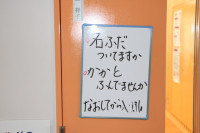 名ふだ
ついてますか
かかと
ふんでませんか
なおしてから入いれ